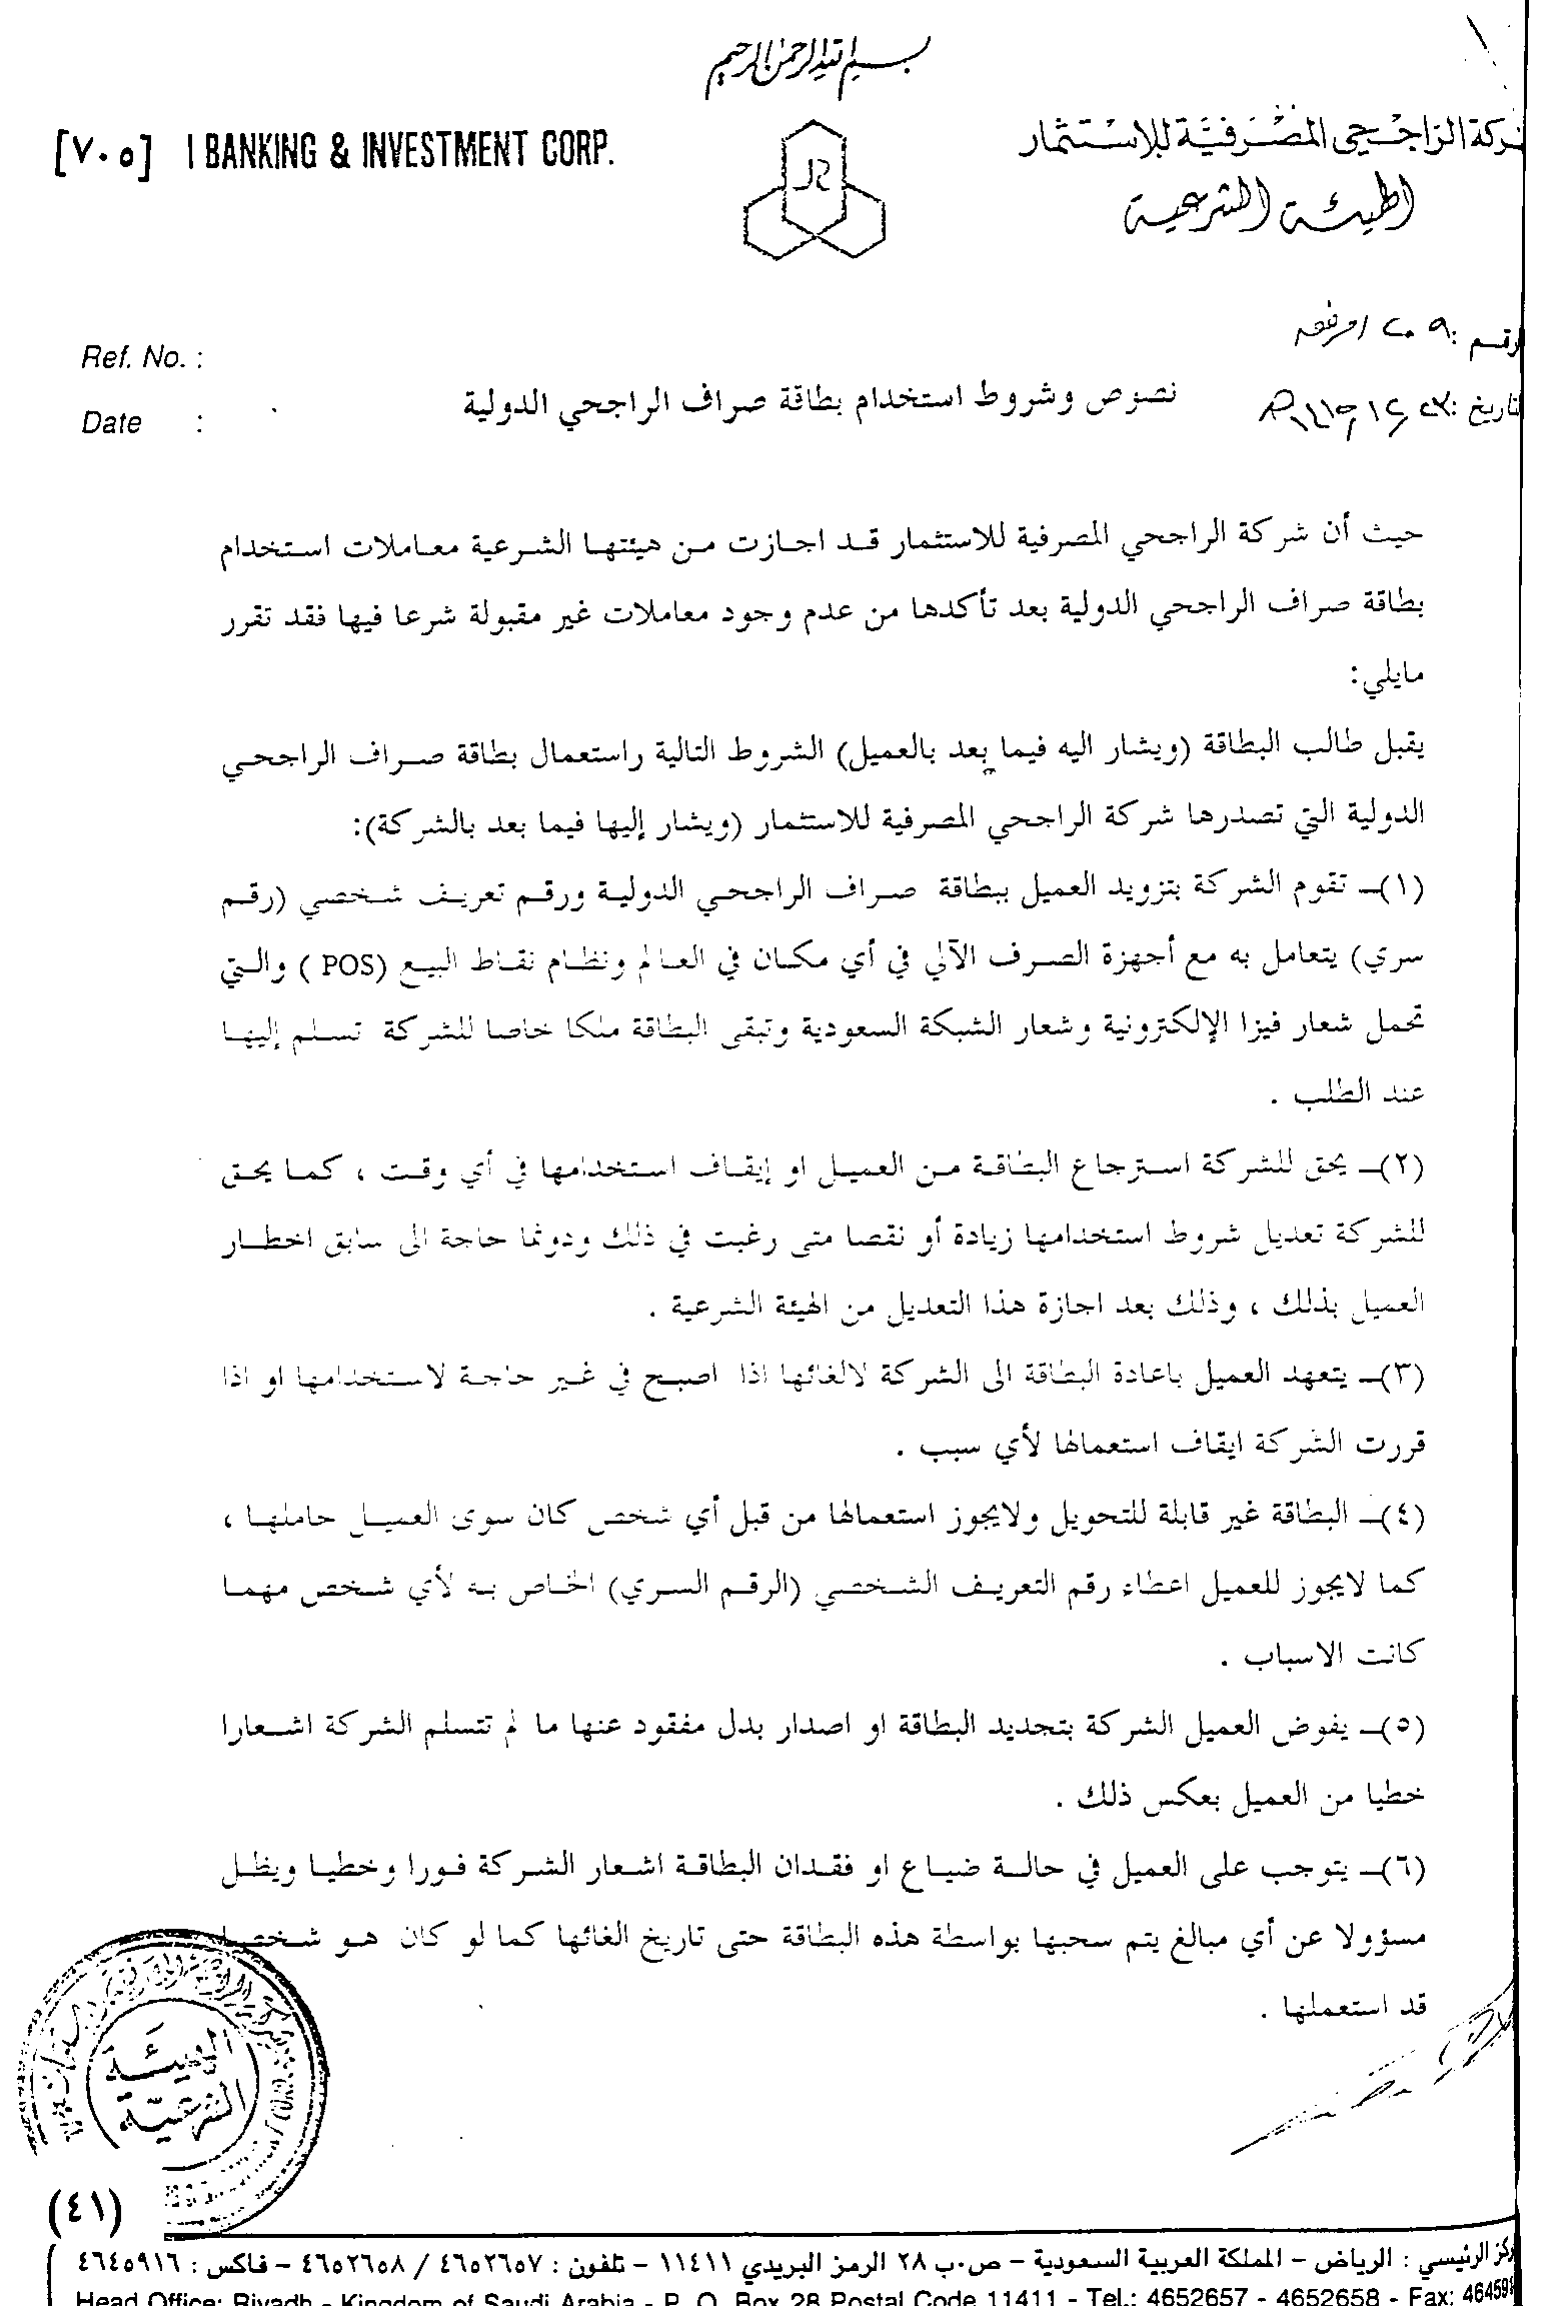 بسم الله الرحمن الرحيم
[٧٠٥] I BANKING & INVESTMENT CORP.
شركة الراجحي المصرفية للاستثمار
الهيئة الشرعية
رقم : ٢٠٩ / مرفقه
Ref. No. :
تاريخ :
Date :
نصوص وشروط استخدام بطاقة صراف الراجحي الدولية
حيث أن شركة الراجحي المصرفية للاستثمار قد اجازت من هيئتها الشرعية معاملات استخدام
بطاقة صراف الراجحي الدولية بعد تأكدها من عدم وجود معاملات غير مقبولة شرعا فيها فقد تقرر
مايلي:
يقبل طالب البطاقة (ويشار اليه فيما بعد بالعميل) الشروط التالية راستعمال بطاقة صراف الراجحي
الدولية التي تصدرها شركة الراجحي المصرفية للاستثمار (ويشار إليها فيما بعد بالشركة):
(١)ـ تقوم الشركة بتزويد العميل ببطاقة صراف الراجحي الدولية ورقم تعريف شخصي (رقم
سري) يتعامل به مع أجهزة الصرف الآلي في أي مكان في العالم ونظام نقاط البيع (POS ) والتي
تحمل شعار فيزا الإلكترونية وشعار الشبكة السعودية وتبقى البطاقة ملكا خاصا للشركة تسلم إليها
عند الطلب .
(٢)ـ يحق للشركة استرجاع البطاقة من العميل او إيقاف استخدامها في أي وقت ، كما يحق
للشركة تعديل شروط استخدامها زيادة أو نقصا متى رغبت في ذلك ودونما حاجة الى سابق اخطار
العميل بذلك ، وذلك بعد اجازة هذا التعديل من الهيئة الشرعية .
(٣)ـ يتعهد العميل باعادة البطاقة الى الشركة لالغائها اذا اصبح في غير حاجة لاستخدامها او اذا
قررت الشركة ايقاف استعمالها لأي سبب .
(٤)ـ البطاقة غير قابلة للتحويل ولايجوز استعمالها من قبل أي شخص كان سوى العميل حاملها ،
كما لايجوز للعميل اعطاء رقم التعريف الشخصي (الرقم السري) الخاص به لأي شخص مهما
كانت الاسباب .
(٥)ـ يفوض العميل الشركة بتجديد البطاقة او اصدار بدل مفقود عنها ما لم تتسلم الشركة اشعارا
خطيا من العميل بعكس ذلك .
(٦)ـ يتوجب على العميل في حالة ضياع او فقدان البطاقة اشعار الشركة فورا وخطيا ويظل
مسؤولا عن أي مبالغ يتم سحبها بواسطة هذه البطاقة حتى تاريخ الغائها كما لو كان هو شخصيا
قد استعملها .
الهيئة
الشرعية
(٤١)
المركز الرئيسي : الرياض – المملكة العربية السعودية – ص.ب ٢٨ الرمز البريدي ١١٤١١ – تلفون : ٤٦٥٢٦٥٧ / ٤٦٥٢٦٥٨ – فاكس : ٤٦٤٥٩١٦
Head Office: Riyadh - Kingdom of Saudi Arabia - P. O. Box 28 Postal Code 11411 - Tel.: 4652657 - 4652658 - Fax: 46459